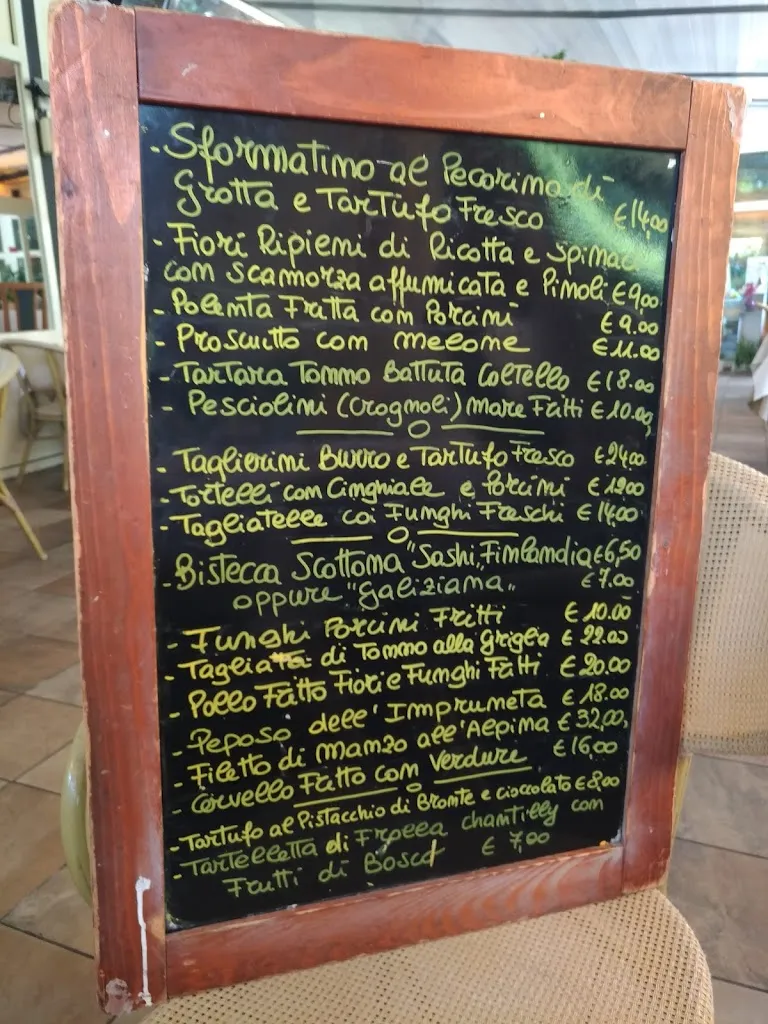 - Sformatino al Pecorino di
Grotta e Tartufo Fresco €14,00
- Fiori Ripieni di Ricotta e Spinac
con scamorza affumicata e Pinoli €9,00
- Polenta Fritta con Porcini €9.00
- Prosciutto con melone €11.00
- Tartara Tonno Battuta Coltello €18.00
- Pesciolini (Crognoli) Mare Fritti €10.00
- Taglierini Burro e Tartufo Fresco €24,00
- Tortelli con Cinghiale e Porcini €19,00
- Tagliatelle coi Funghi Freschi €14,00
- Bistecca Scottona "Sashi„ Finlandia €6,50
oppure "Galiziana„ €7.00
- Funghi Porcini Fritti €10.00
- Tagliata di Tonno alla Griglia €22.00
- Pollo Fritto Fiori e Funghi Fritti €20.00
- Peposo dell'Impruneta €18.00
- Filetto di Manzo all'Alpina €32,00
- Cervello Fritto con Verdure €16,00
- Tartufo al Pistacchio di Bronte e cioccolato €8,00
- Tartelletta di Frolla chantilly con
Frutti di Bosco €7,00